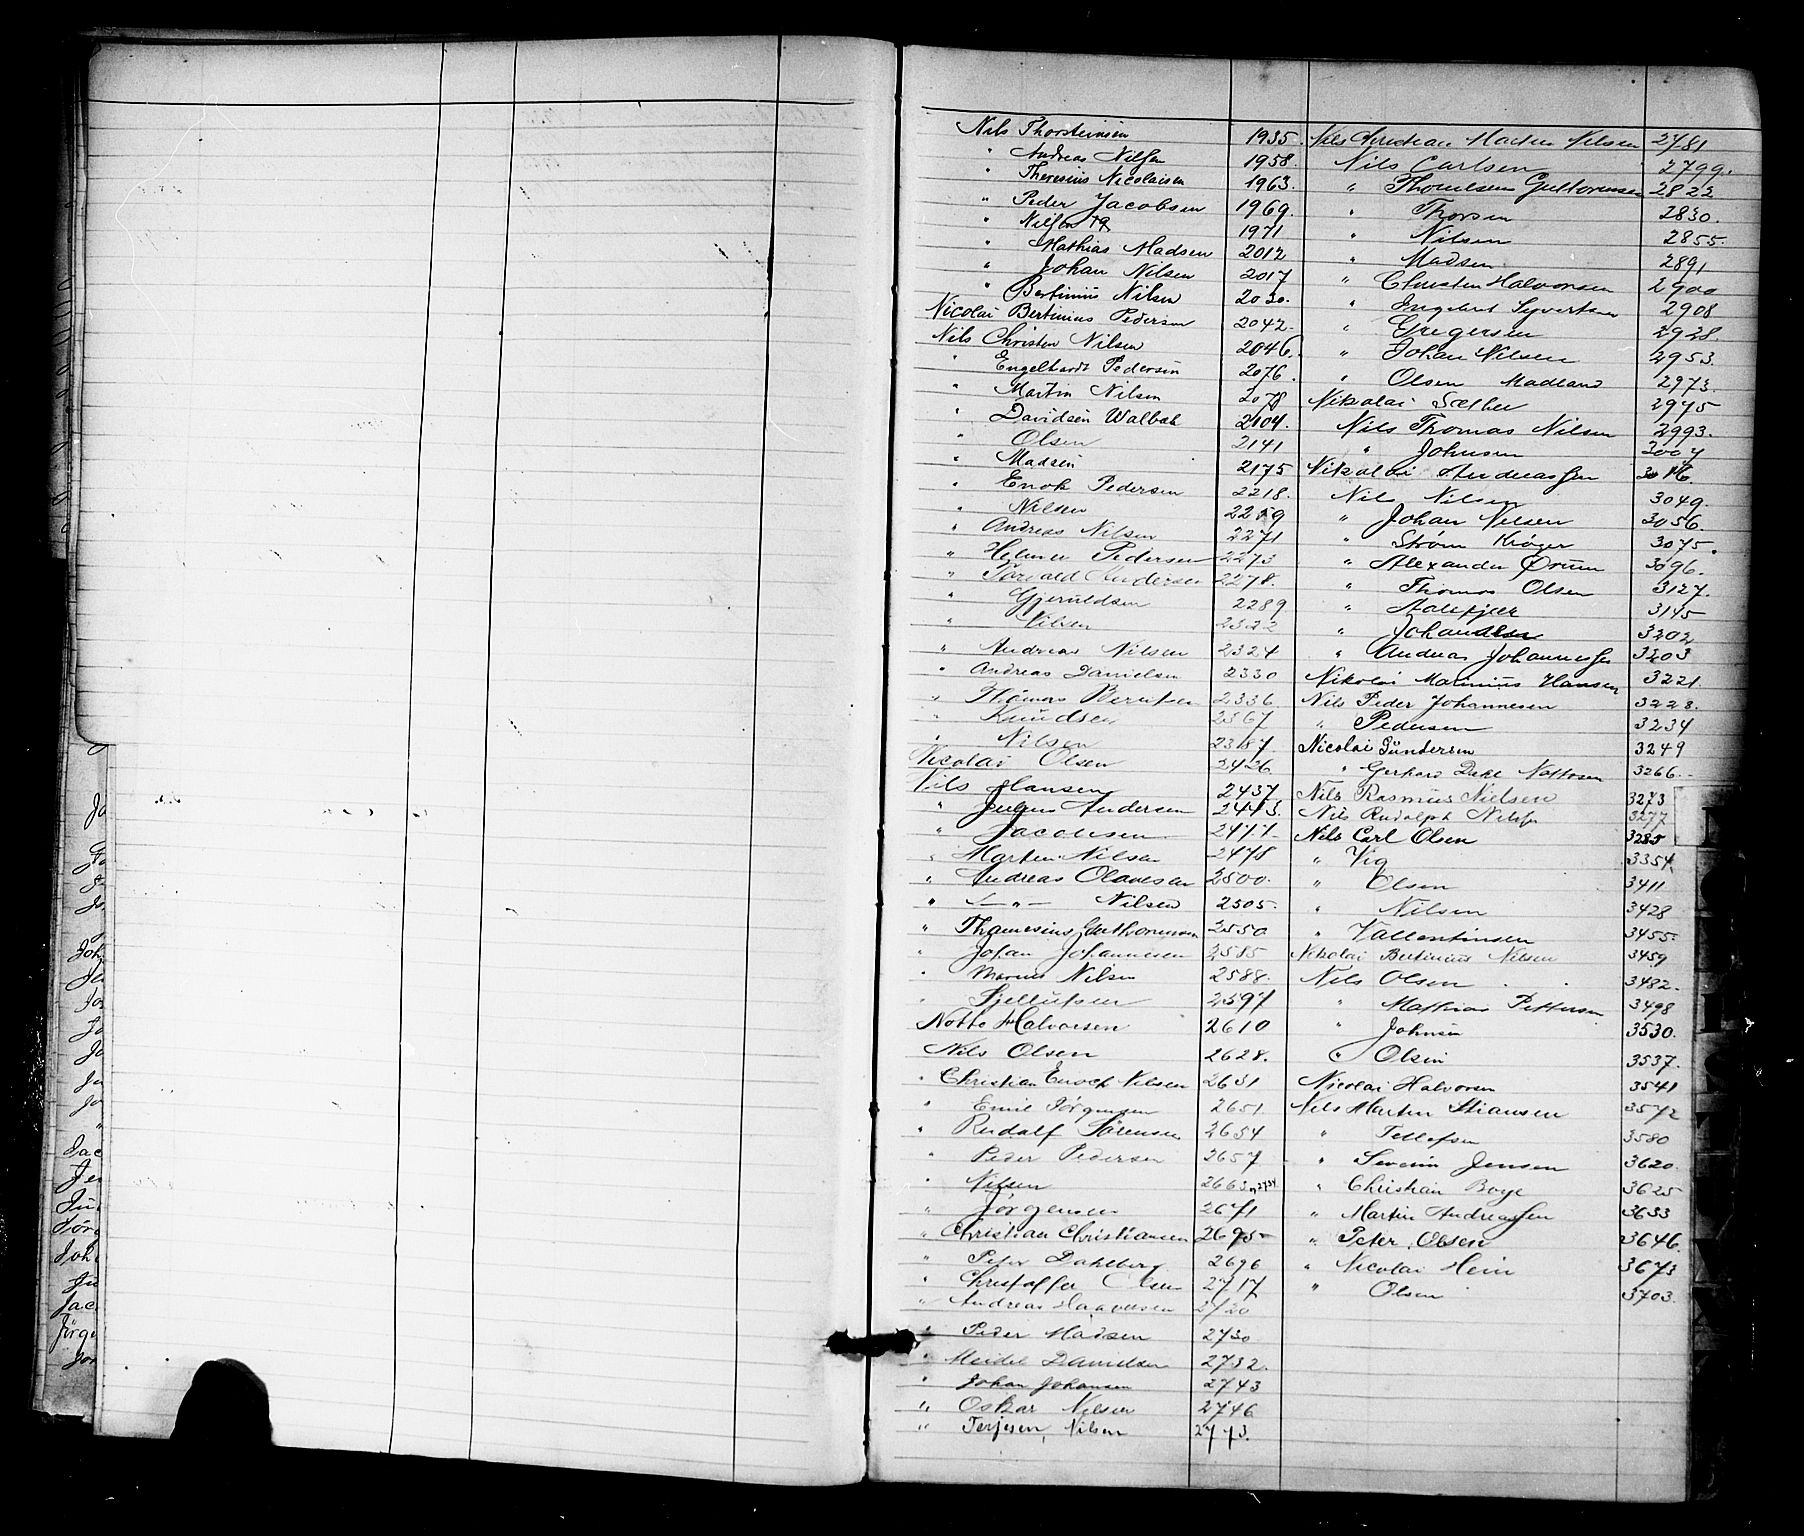 Nils Thorsteinsen 1935.
" Andreas Nilsen 1958.
" Theresius Nicolaisen 1963.
" Peder Jacobsen 1969.
" Nilsen 1971
" Mathias Madsen 2012
" Johan Nilsen 2017
" Bertinius Nilsen 2030.
Nicolai Bertinius Pedersen 2042.
Nils Christen Nilsen 2046.
" Engelhardt Pedersen 2076.
" Martin Nilsen 2078
" Davidsen Walbak 2104.
" Olsen 2141
" Madsen 2175
" Enok Pedersen 2218.
" Nilsen 2259
" Andreas Nilsen 2271
" Helmer Pedersen 2273
" Torvald Andersen 2278.
" Gjeruldsen 2289
" Nilsen 2322
" Andreas Nilsen 2324
" Andreas Danielsen 2330
" Thomas Berntsen 2336
" Knudsen 2367
" Nilsen 2387.
Nicolai Olsen 2426
Nils Hansen 2437
" Julius Andersen 2443.
" Jacobsen 2477.
" Martin Nilsen 2478
" Andreas Olavesen 2500.
" — " — Nilsen 2505.
" Thomesius Guthormsen 2550
" Johan Johannesen 2585
" Marius Nilsen 2588.
" Kjellufsen 2597
Notto Halvorsen 2610
Nils Olsen 2628.
" Christian Enoch Nilsen 2631
" Emil Jörgensen 2651.
" Rudolf Sørensen 2654
" Peder Pedersen 2657
" Nilsen 2663, 2734
" Jörgensen 2671
" Christian Christiansen 2695
" Peter Dahlberg 2696
" Christoffer Olsen 2717
" Andreas Haavorsen 2720
" Peder Madsen 2730
" Meidel Danielsen 2732.
" Johan Johansen 2743
" Oskar Nilsen 2746
" Terjesen, Nilsen 2773.
Nils Christian Martin Nilsen 2781
Nils Carlsen 2799.
" Thomesen Guttormsen 2822
" Thorsen 2830.
" Nilsen 2855.
" Madsen 2891
" Christen Halvorsen 2900
" Engebret Syvertsen 2908
" Gregersen 2928.
" Johan Nilsen 2953.
" Olsen Madland 2973
Nikolai Sæther 2975
Nils Thomas Nilsen 2993.
" Johnsen 3007
Nikolai Andreassen 3016
Nils Nilsen 3049.
" Johan Nilsen 3056
" Strøm Krøger 3075.
" Alexander Ørum 3096.
" Thomas Olsen 3127.
" Aalekjær 3145
" Johansen 3202
" Andreas Johannessen 3203
Nikolai Marinius Hansen 3221.
Nils Peder Johannesen 3228.
" Pedersen 3234
Nicolai Gundersen 3249
" Gerhard Dahl Nottosen 3266.
Nils Rasmus Nielsen 3273
Nils Rudolph Nilsen 3277
Nils Carl Olsen 3285
" Vig 3354
" Olsen 3411
" Nilsen 3428
" Vallentinsen 3455.
Nikolai Bertinius Nilsen 3459
Nils Olsen 3482.
" Mathias Pettersen 3498
" Johnsen 3530.
" Olsen 3537.
Nicolai Halvorsen 3541
Nils Martin Stiansen 3572
" Tellefsen 3580
" Severin Jensen 3620.
" Christian Boye 3625
" Martin Andreassen 3633
" Peter Olsen 3646.
" Nicolai Hein 3673
" Olsen 3703.